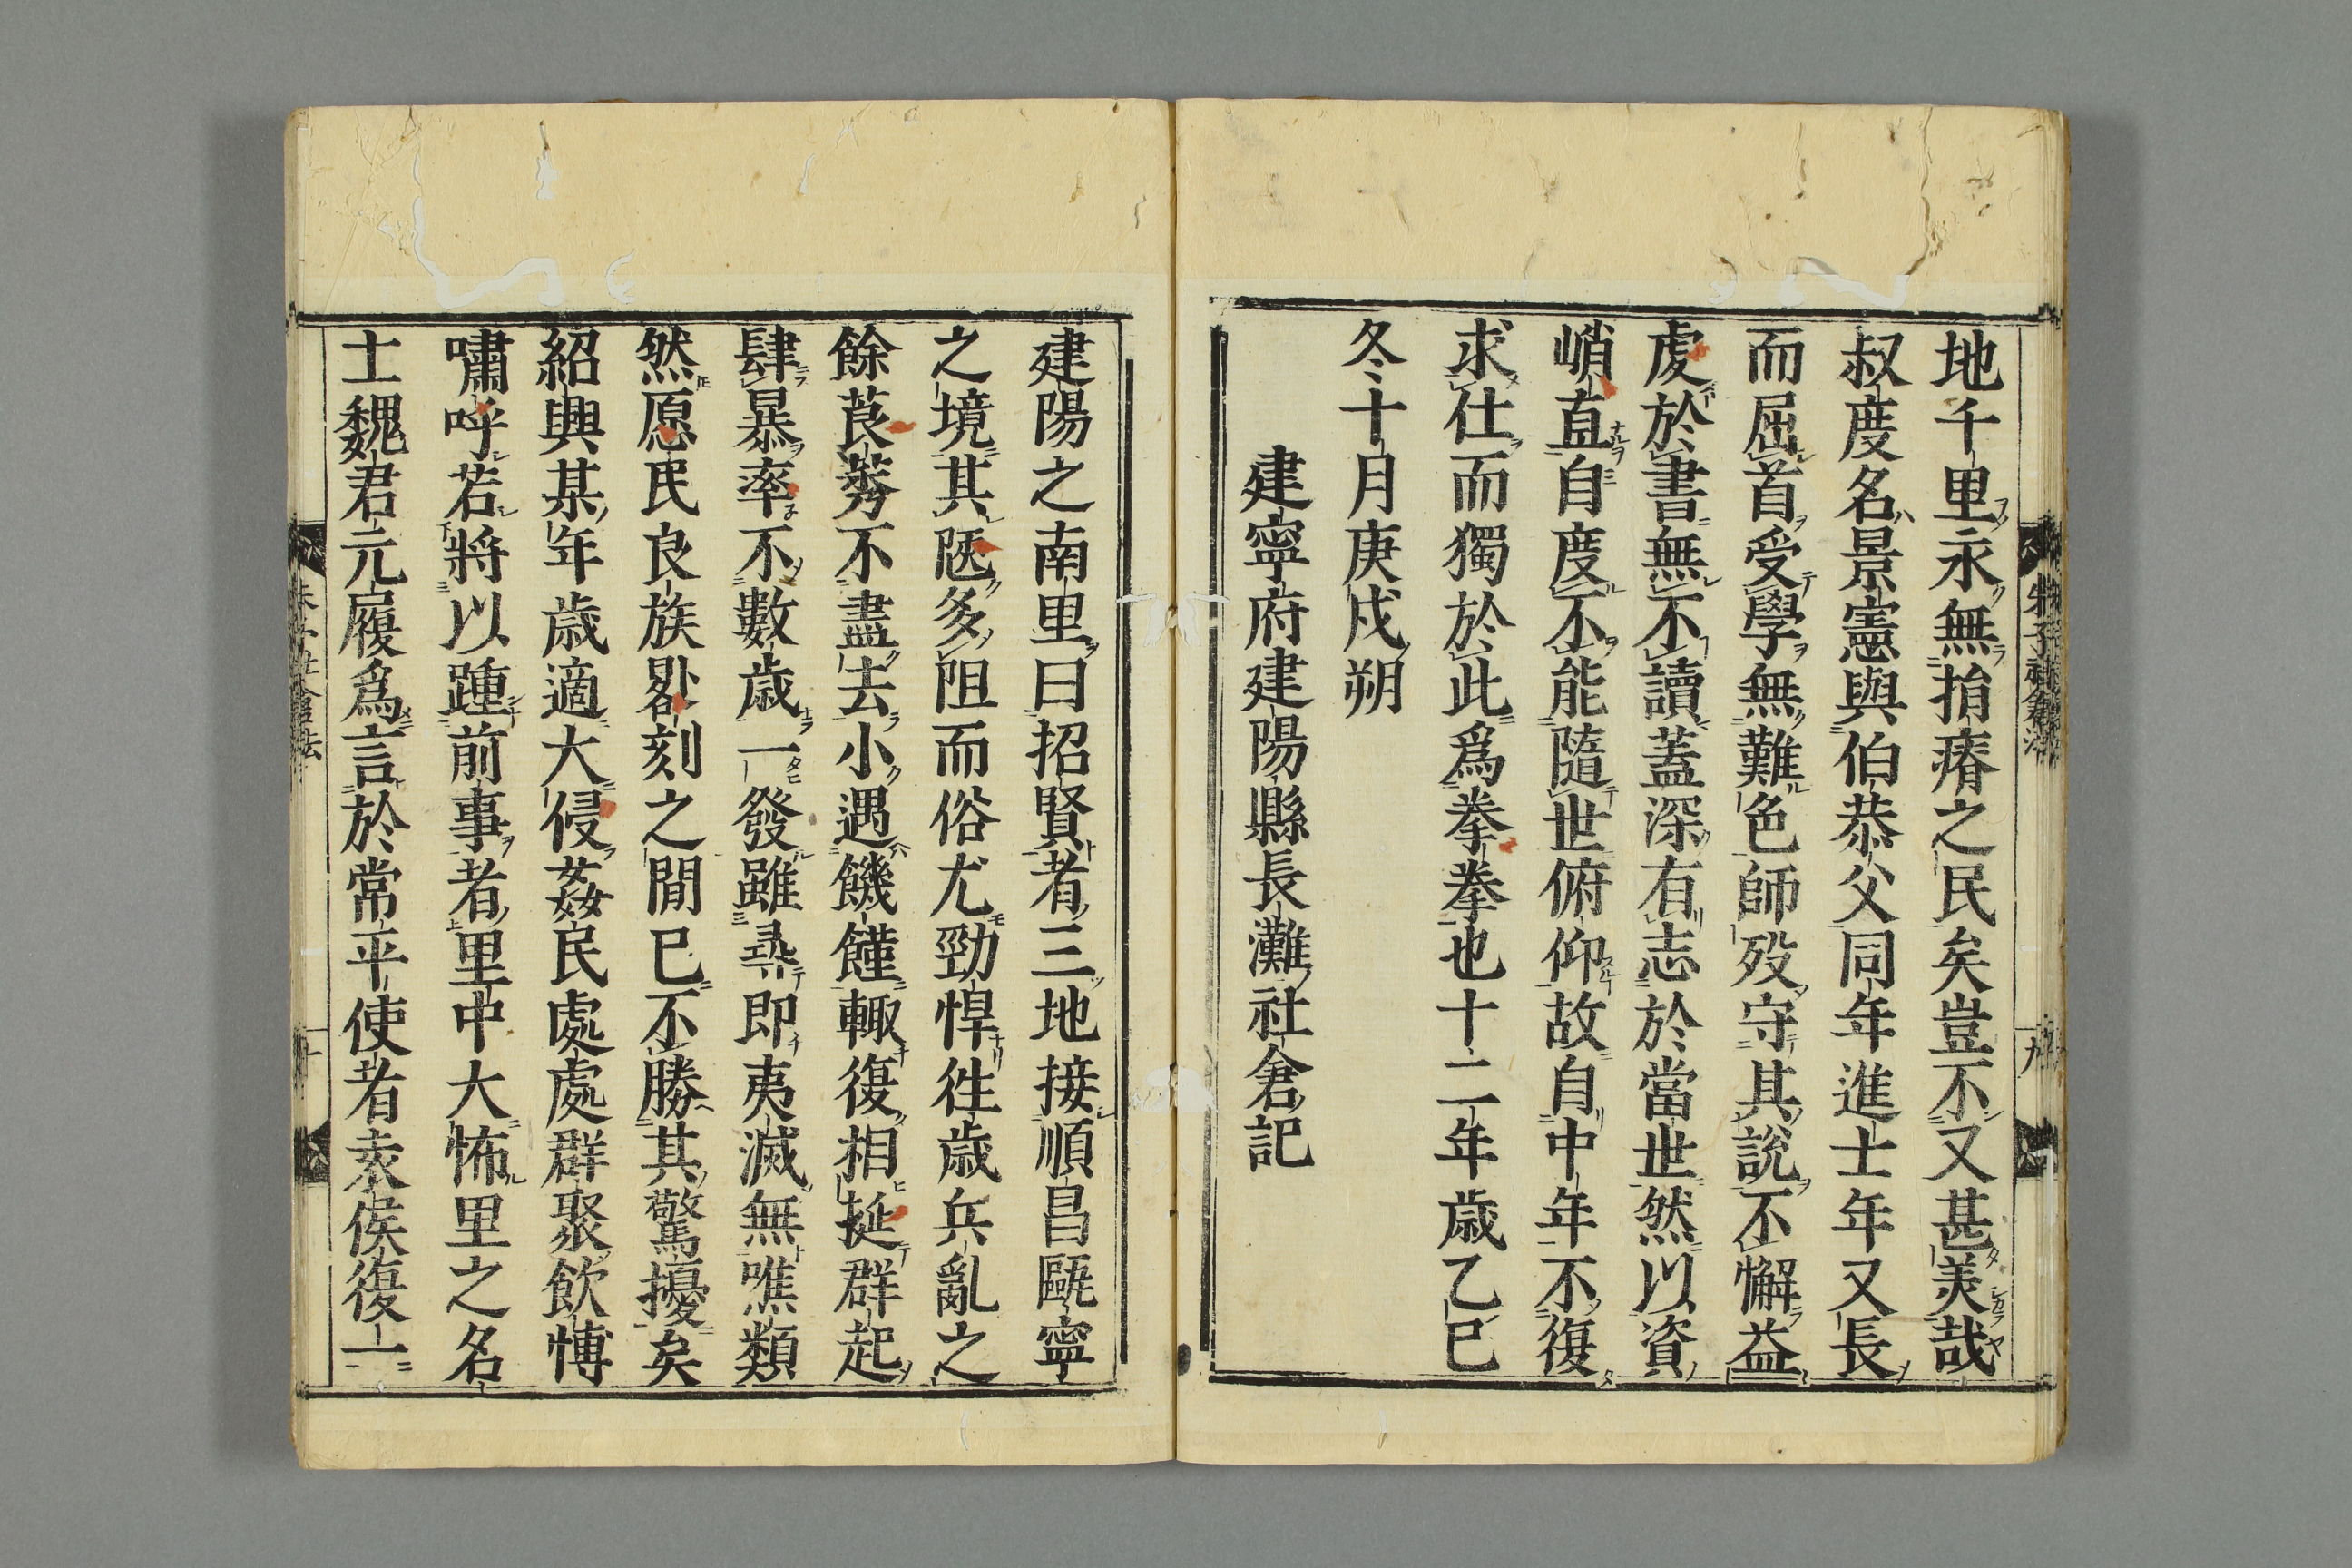 地千里永無捐瘠之民矣豈不又甚美哉
叔度名景憲與伯恭父同年進士年又長
而屈首受學無難色師歿守其說不懈益
虔於書無不讀蓋深有志於當世然以資
峭直自度不能隨世俯仰故自中年不復
求仕而獨於此爲拳拳也十二年歲乙巳
冬十月庚戌朔
建寧府建陽縣長灘社倉記
建陽之南里曰招賢者三地接順昌甌寧
之境其陿多阻而俗尤勁悍徃歲兵亂之
餘莨莠不盡去小遇饑饉輙復相挻群起
肆暴率不數歲一發雖尋即夷滅無噍類
然愿民良族晷刻之間已不勝其驚擾矣
紹興某年歲適大侵姦民處處群聚飲博
嘯呼若將以踵前事者里中大怖里之名
士魏君元履爲言於常平使者袁侯復一